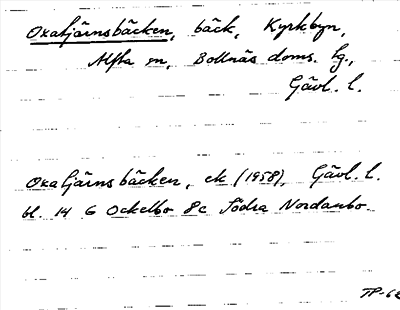 Oxatjärnsbäcken, bäck, Kyrkbyn,
Alfta sn, Bollnäs doms. tg.,
Gävl. l.
Oxatjärnsbäcken, ek (1958), Gävl. l.
bl. 14 G Ockelbo 8c Södra Nordanbo
TP-62